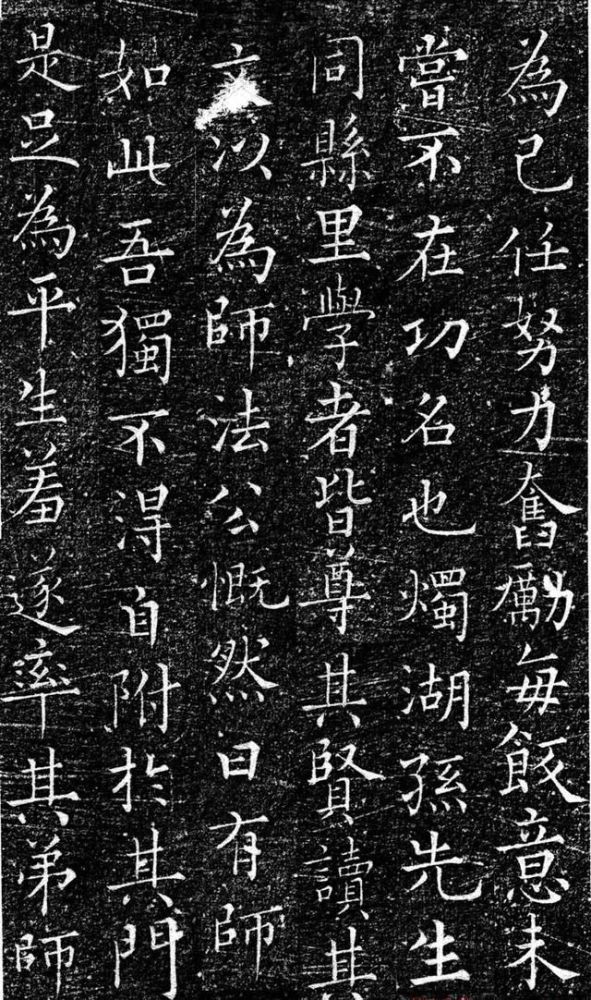 為己任努力奮勵每飯意未
嘗不在功名也燭湖孫先生
同縣里學者皆尊其賢讀其
文以為師法公慨然曰有師
如此吾獨不得自附於其門
是足為平生羞遂率其弟師